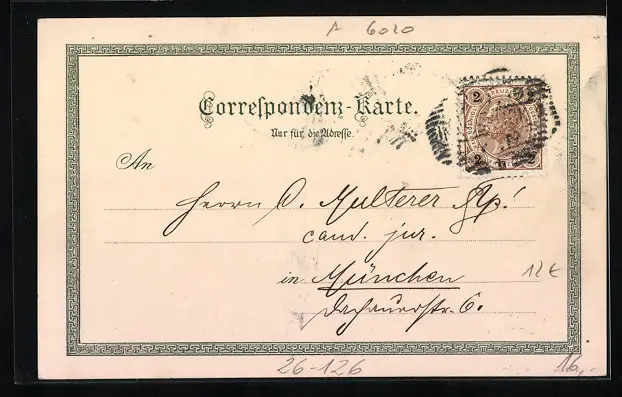 A 6020
Correspondenz-Karte.
Nur für die Adresse.
2 KREUZER 2
2 2
An
Herrn O. Multerer
cand. jur.
in München
12€
Dachauerstr. 6.
26-126
16,-